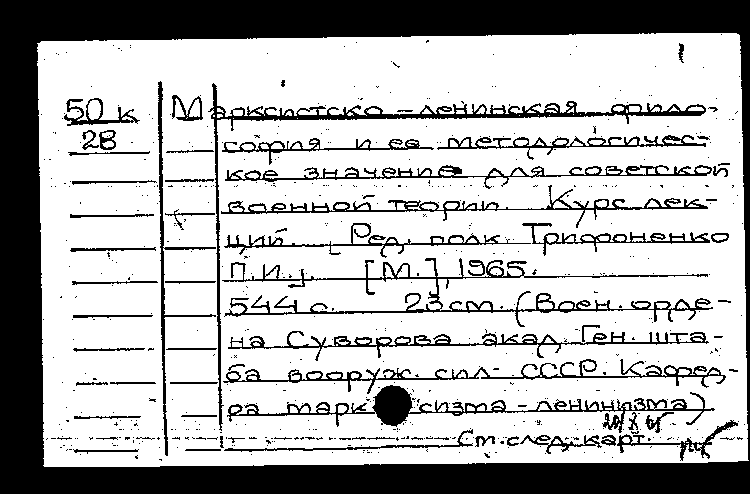 1
50 к Марксистско-ленинская фило-
28 софия и ее методологичес-
кое значение для советской
военной теории. Курс лек-
ций. [Ред. полк. Трифоненко
П.И.]. [М.], 1965.
544 с. 23 см. (Воен. орде-
на Суворова акад. Ген. шта-
ба вооруж. сил СССР. Кафед-
ра марксизма-ленинизма)
Ст. след. карт.